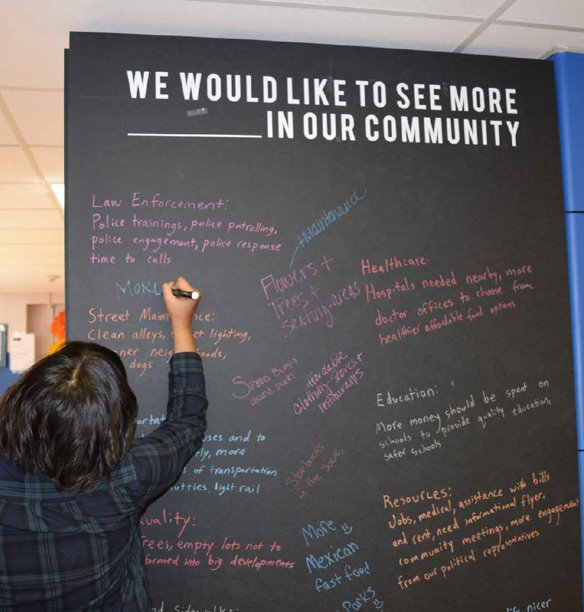 WE WOULD LIKE TO SEE MORE
__________ IN OUR COMMUNITY
Law Enforcement:
Police trainings, police patrolling,
police engagement, police response
time to calls
Street
Clean alleys, lighting,
dogs
and to
more
of transportation
light rail
Trees, empty lots not to
into big developments
+Maintenance
Flowers +
Trees +
Seating areas
Speed Bumps
around parks
affordable
clothing stores +
restaurants
in the
More
Mexican
fast food
Parks
Healthcare:
Hospitals needed nearby, more
doctor offices to choose from,
healthier affordable food options.
Education:
More money should be spent on
schools to provide quality education,
safer schools
Resources:
Jobs, medical, assistance with bills
and rent, need informational flyer,
community meetings, more engagement
from our political representatives
nicer